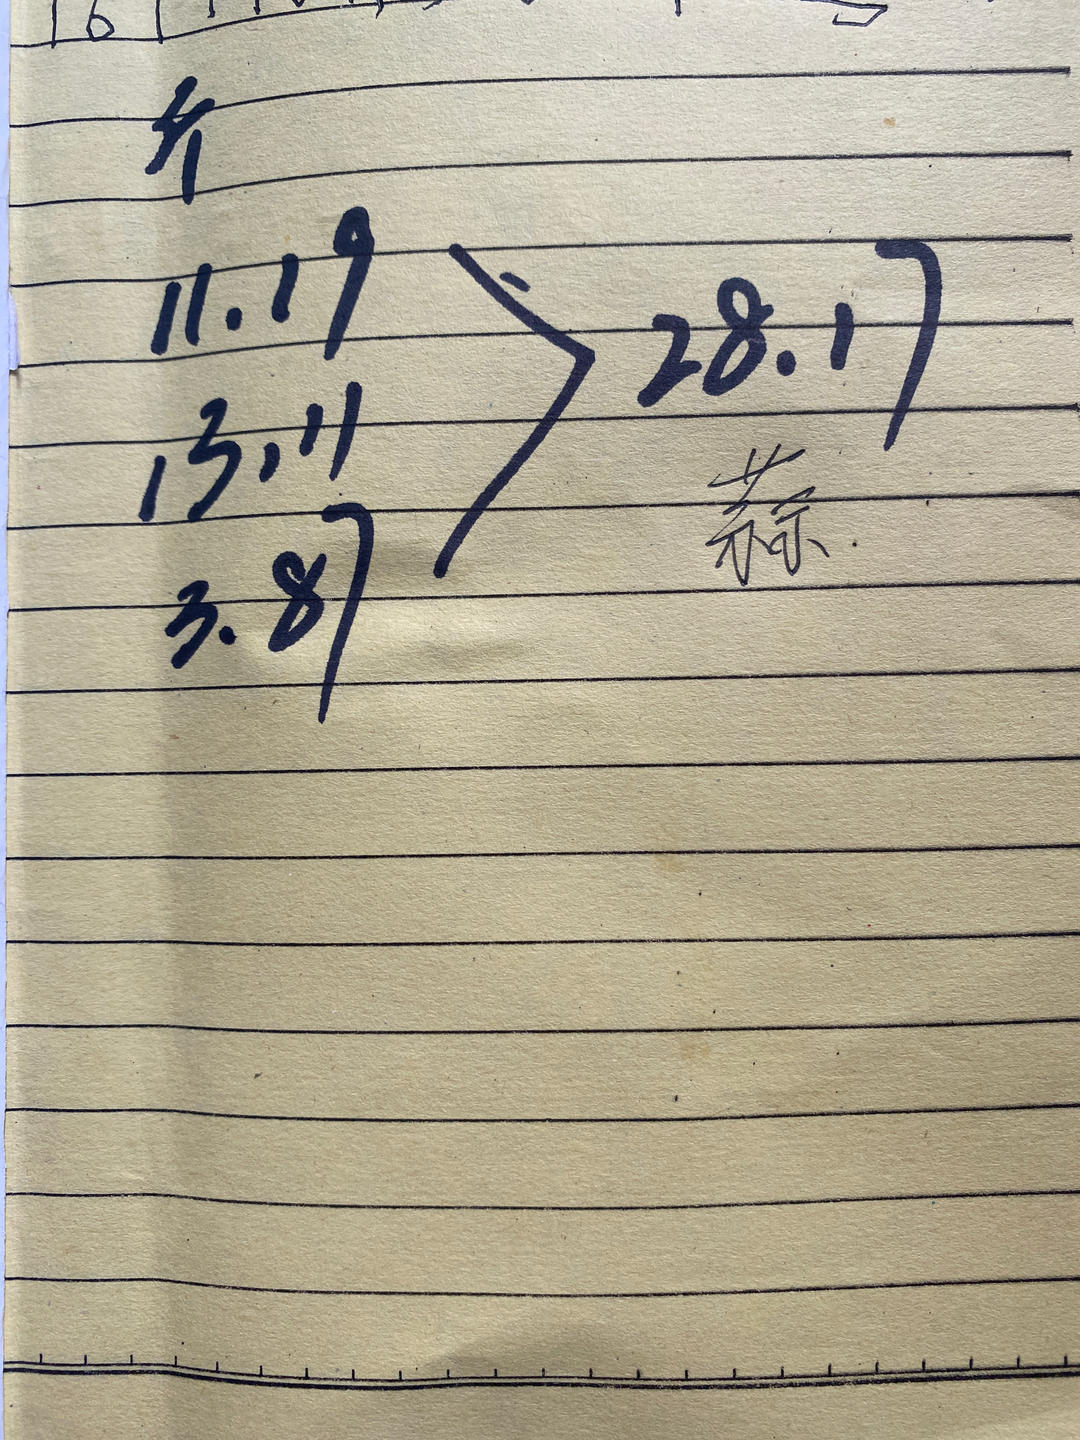 16
斤
11.19
13.11
3.87
28.17
蒜.